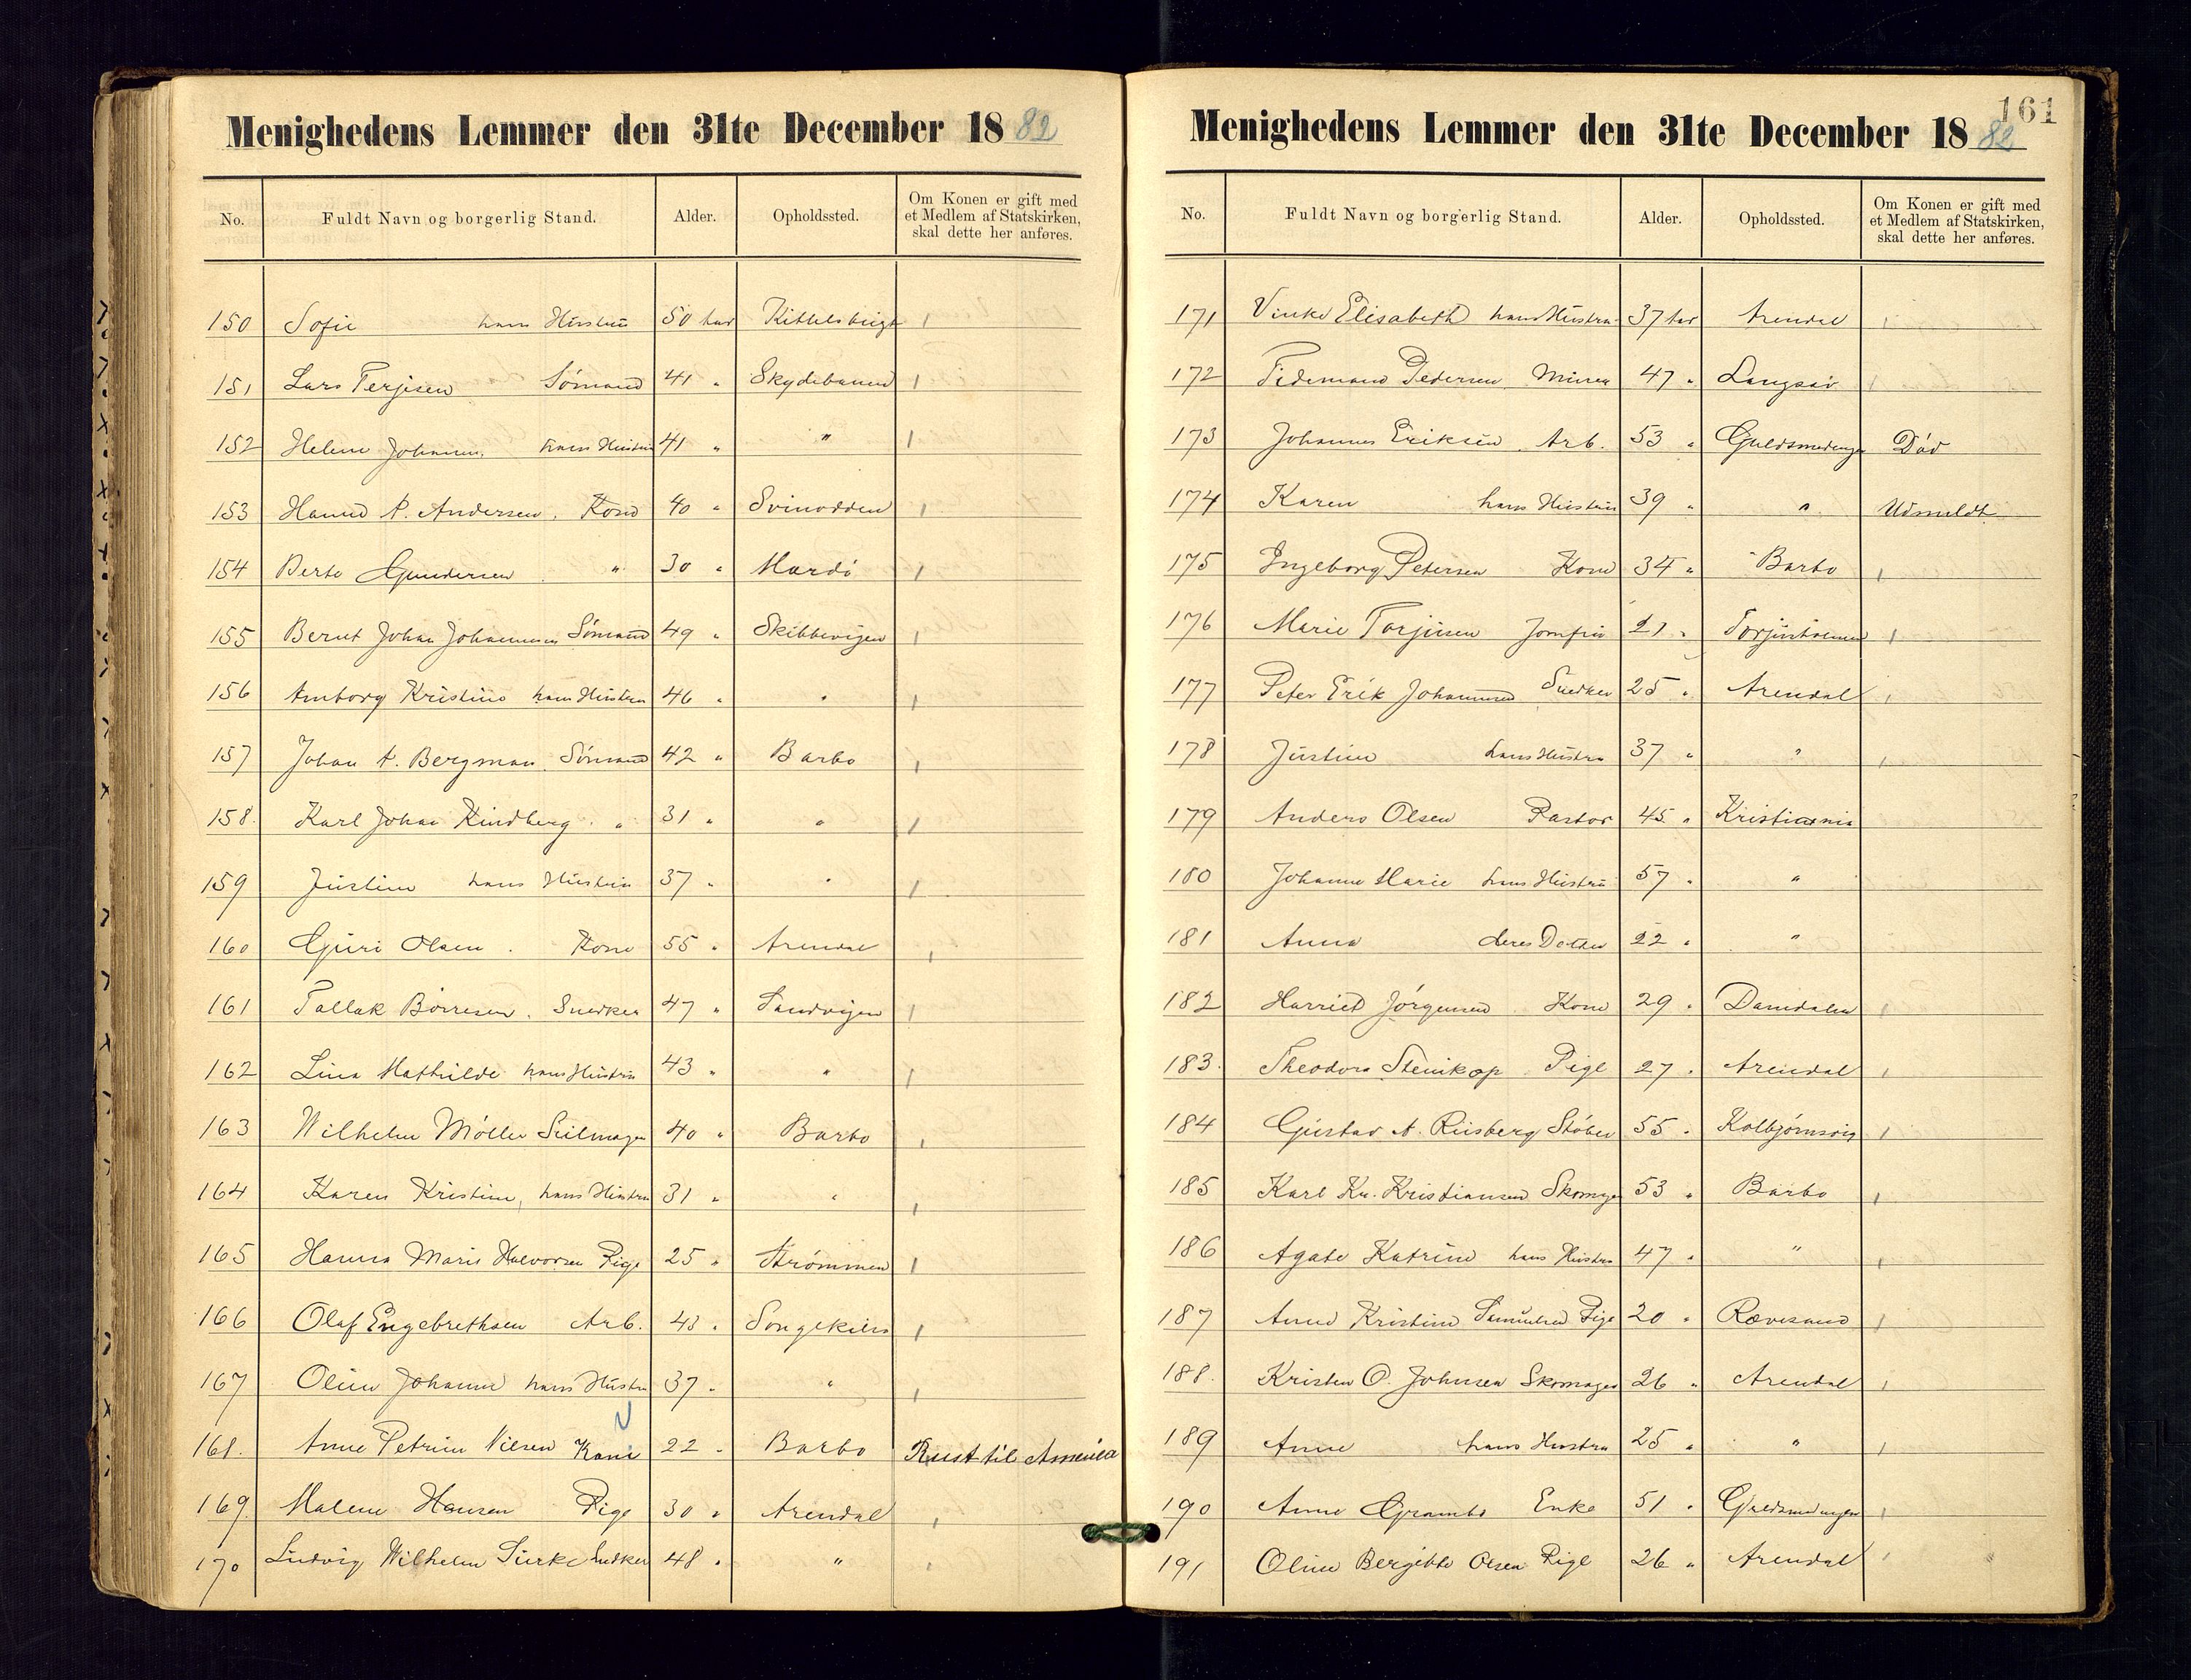 Menighedens Lemmer den 31te December 1882
No. Fuldt Navn og borgerlig Stand. Alder. Opholdssted. Om Konen er gift med et Medlem af Statskirken, skal dette her anføres.
150 Sofie hans Hustru 50 aar
151 Lars Terjesen Sømand 41 " Skydebanen
152 Helene Johanne, hans Hustru 41 " "
153 A. Andersen. Kone 40 " Svinodden
154 Berte Gundersen " 30 "
155 Bernt Johan Johannesen Sømand 49 " Skibbevigen
156 Amborg Kristine hans Hustru 46 " "
157 Johan A. Bergman. Sømand 42 " Barbo
158. Karl Johan Kindberg. " 31 " "
159 Justine hans Hustru 37 " "
160 Guri Olsen. Kone 55 " Arendal
161 Tallak Børresen. Snedker 47 " Sandvigen
162 Lina Mathilde hans Hustru 43 " "
163 Wilhelm Møller Seilmager 40 " Barbo
164 Karen Kristine, hans Hustru 31 " "
165 Hanna Marie Halvorsen Pige 25 " Strømmen
166 Olaf Engebrethsen Arb. 43 "
167 Oline Johanne hans Hustru 37 " "
168. Anne Petrine Nilsen Kone 22 " Barbo Reist til Amerika
169 Malene Hansen Pige 30 " Arendal
170 Ludvig Wilhelm Snedker 48 " "
161
Menighedens Lemmer den 31te December 1882
No. Fuldt Navn og borgerlig Stand. Alder. Opholdssted. Om Konen er gift med et Medlem af Statskirken, skal dette her anføres.
171 Elisabeth hans Hustru 37 aar Arendal
172 Tidemand Pedersen Murer 47 " Langsæ
173 Johannes Eriksen Arb. 53 " Død
174 Karen hans Hustru 39 " " Udmeldt
175 Ingeborg Petersen Kone 34 " Barbo
176 Marie Torjusen Jomfru 21 " Torjusholmen
177 Peter Erik Johannesen Snedker 25 " Arendal
178 Justine hans Hustru 37 " "
179 Anders Olsen Pastor 45 " Kristiania
180 Johanne Marie hans Hustru 57 " "
181 Anna deres Datter 22 " "
182 Harriet Jørgensen Kone 29 "
183. Theodora Stenikop Pige 27 " Arendal
184 Gustav A. Riisberg Støber 55 " Kolbjørnsvig
185 Karl Kr. Kristiansen Skomager 53 " Barbo
186 Agate Katrine hans Hustru 47 " "
187 Anne Kristine Samuelsen Pige 20 " Rævesand
188. Kristen O. Johnsen Skomager 26 " Arendal
189 Anne hans Hustru 25 " "
190 Anne Grambo Enke 51 "
191 Oline Bergitte Olsen Pige 26 " Arendal